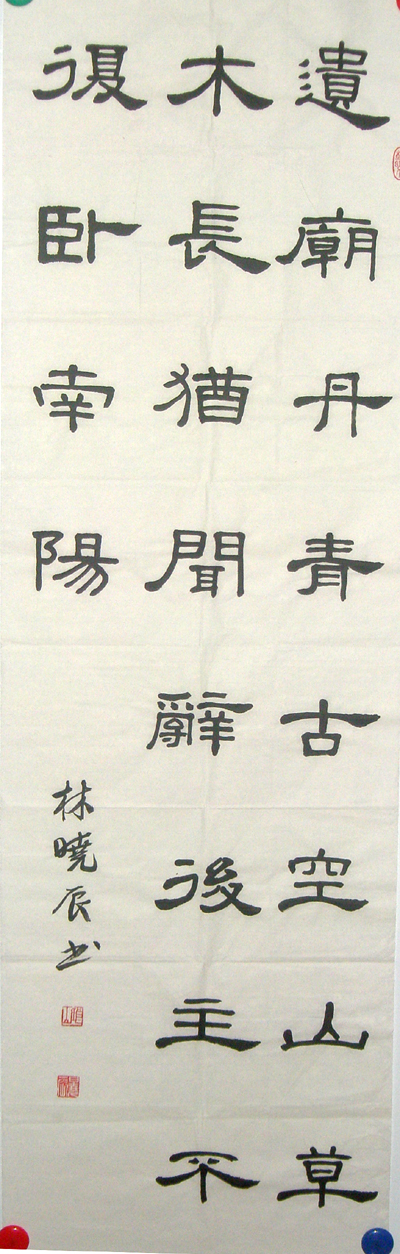 遺廟丹青古空山草
木長猶聞辭後主不
復卧南陽
林曉辰书